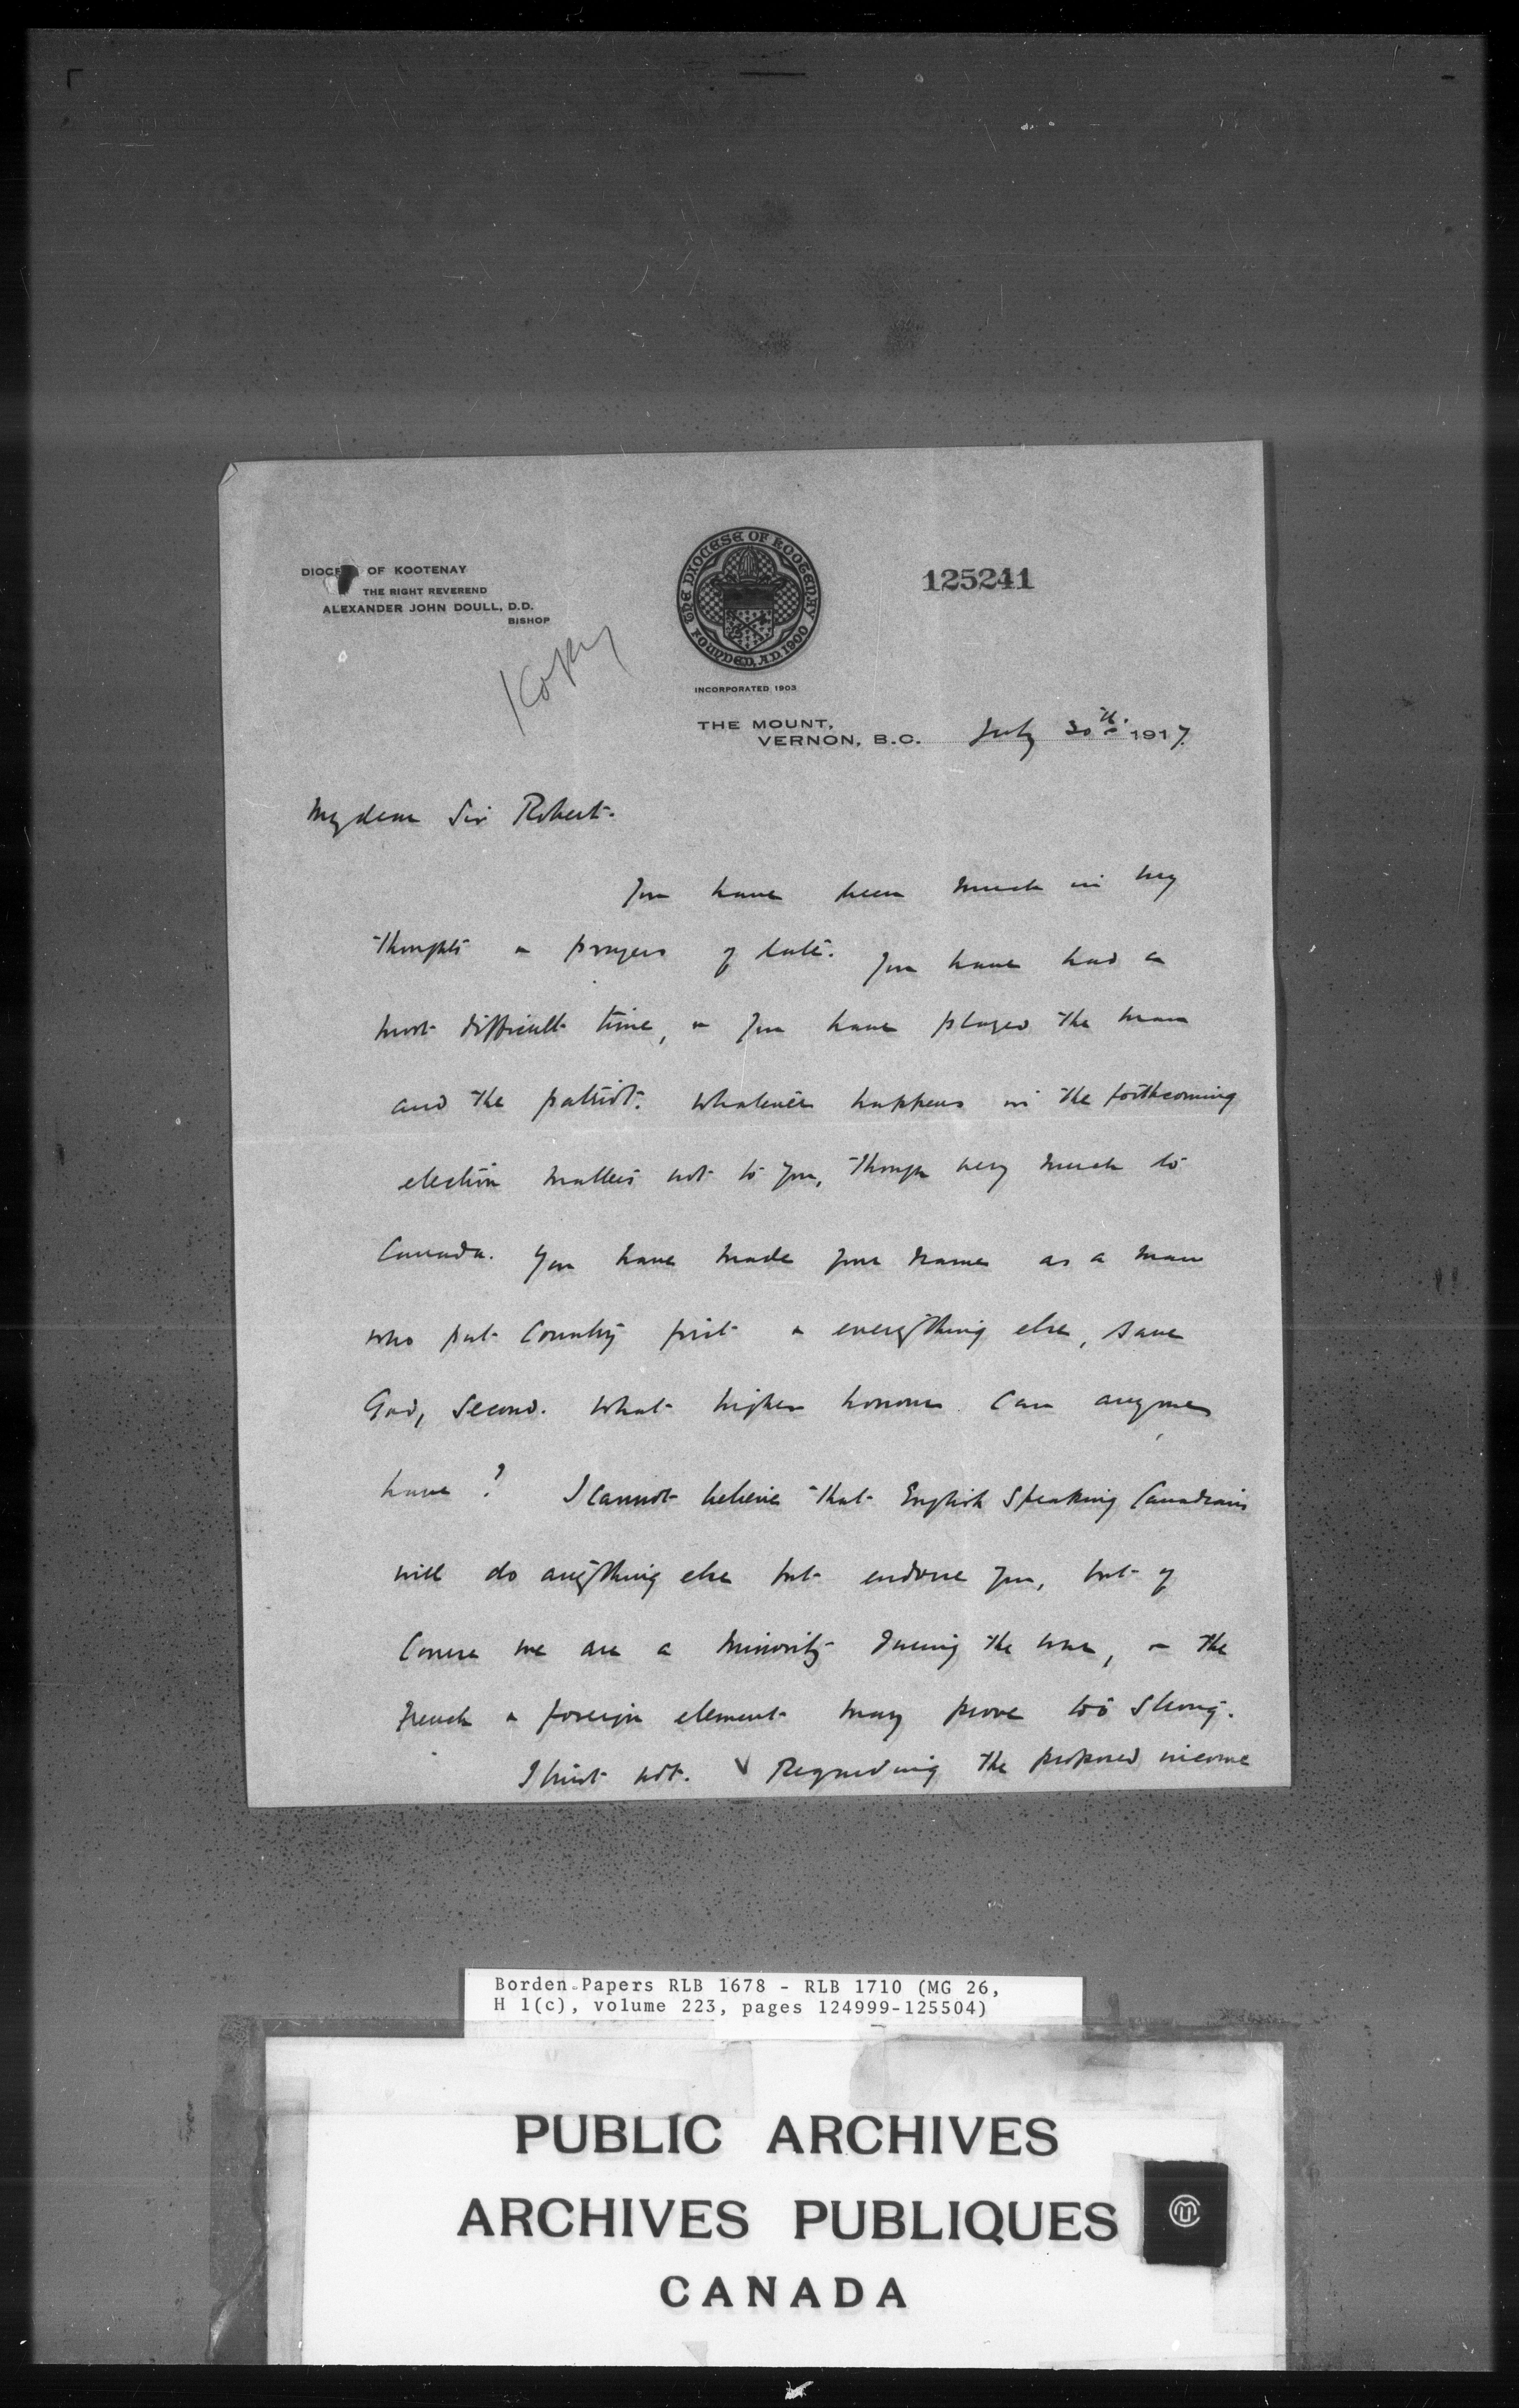 DIOCESE OF KOOTENAY
THE RIGHT REVEREND
ALEXANDER JOHN DOULL, D.D.
BISHOP
THE DIOCESE OF KOOTENAY
FOUNDED, A.D. 1900
INCORPORATED 1903
125241
THE MOUNT,
VERNON, B.C. July 30th. 1917.
My dear Sir Robert.
You have been much in my
thoughts & prayers of late. You have had a
most difficult time, & you have played the man
and the patriot. Whatever happens in the forthcoming
election matters not to you, though very much to
Canada. You have made your name as a man
who put Country first & everything else, save
God, second. What higher honour can anyone
have? I cannot believe that English speaking Canadians
will do anything else but endorse you, but of
course we are a minority during the war, & the
French & foreign element may prove too strong.
I trust not. Regarding the proposed income
Borden Papers RLB 1678 - RLB 1710 (MG 26,
H 1(c), volume 223, pages 124999-125504)
PUBLIC ARCHIVES
ARCHIVES PUBLIQUES
CANADA